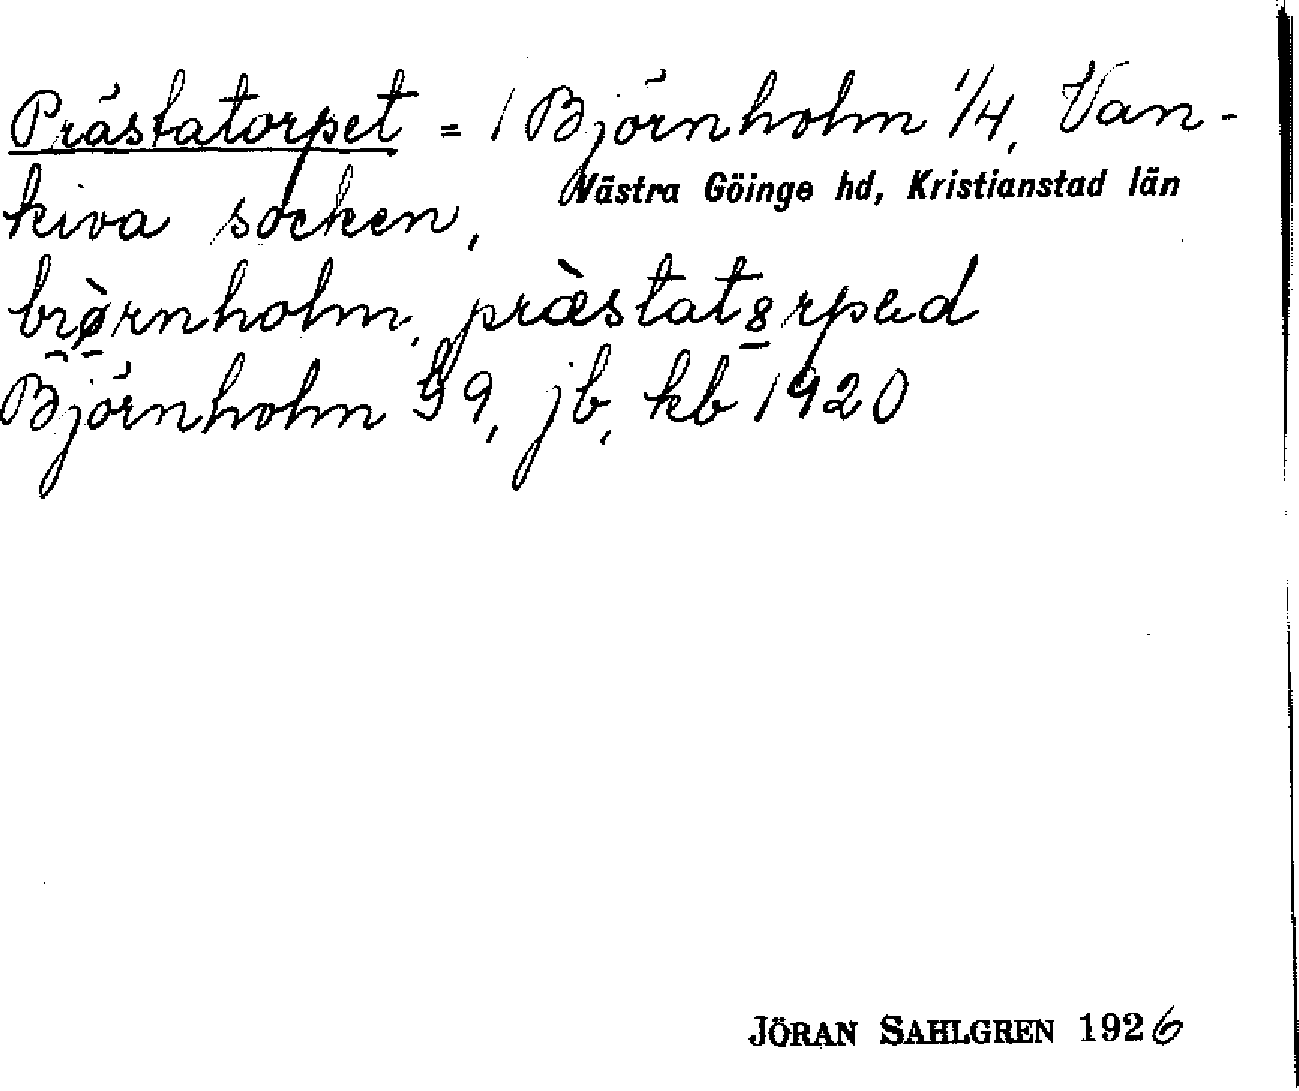 Prästatorpet = 1 Björnholm 1/4, Van-
kiva socken, Västra Göinge hd, Kristianstad län
bıø̀rnholm, præ̀stat8rpad
Björnholm 99, jb, kb 1920
JÖRAN SAHLGREN 1926